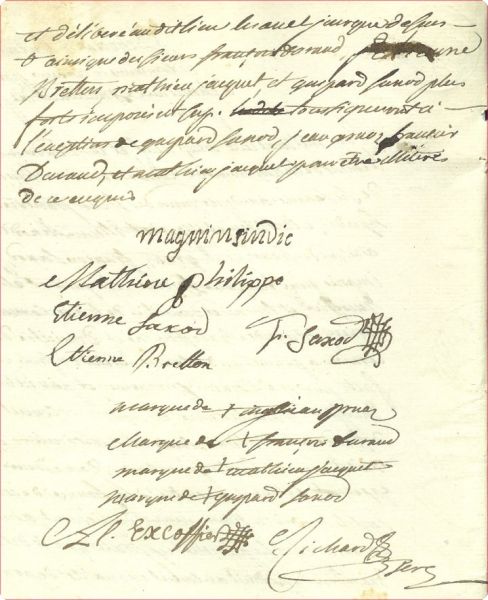 et délibéré audit lieu les an et jour que dessus
ainsi que des sieurs françois durand Etienne
Bretton mathieu jacquet et gaspard saxod plus
forts imposés et
l'exception de gaspard saxod, jean françois
Durand, et mathieu jacquet pour être illitérés
de ce enquis
magnin sindic
Mathieu philippe
Etienne Saxod
F. Saxod
Etienne Bretton
marque de +
Marque de + françois durand
marque de + mathieu jacquet
marque de + gaspard saxod
Excoffier
Richard